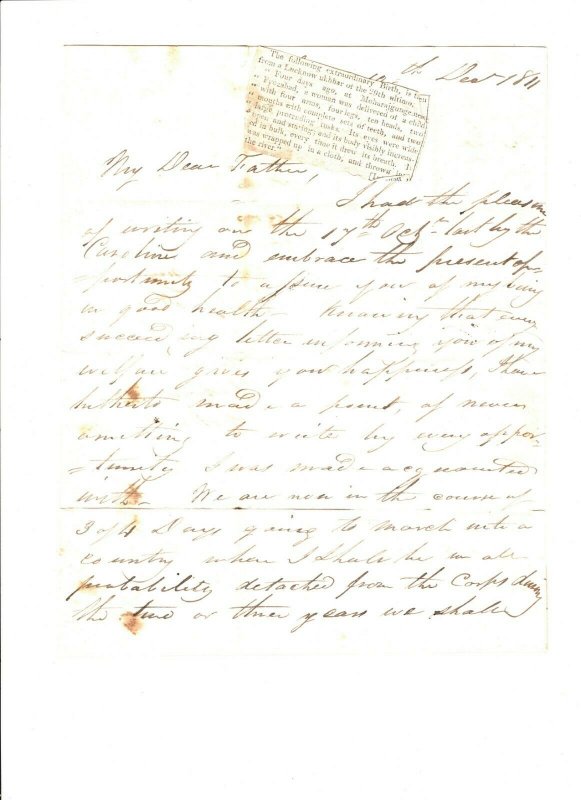 The following extraordinary Birth, is
from a Lucknow ukhbar of the 20th ultimo.
" Four days ago, at Maharajgunge near
" Fyzabad, a woman was delivered of a child
with four arms, four legs, ten heads, two
mouths with complete sets of teeth, and two
large protruding tusks. Its eyes were wide
open, and staring; and its body visibly increas-
ed in bulk, every time it drew its breath. I
was wrapped up in a cloth, and thrown in
the river."
th Decr 1811
My Dear Father,
I had the pleasure
of writing on the 17th Octr last by the
Caroline and embrace the present op-
=portunity to assure you of my being
in good health - Knowing that every
succeeding letter informing you of my
welfare gives you happiness, I have
hitherto made a point, of never
omitting to write by every oppor-
=tunity I was made acquainted
with - We are now in the course of
3 or 4 Days going to march into a
country where I shall be in all
probability detached from the Corps during
the two or three years we shall